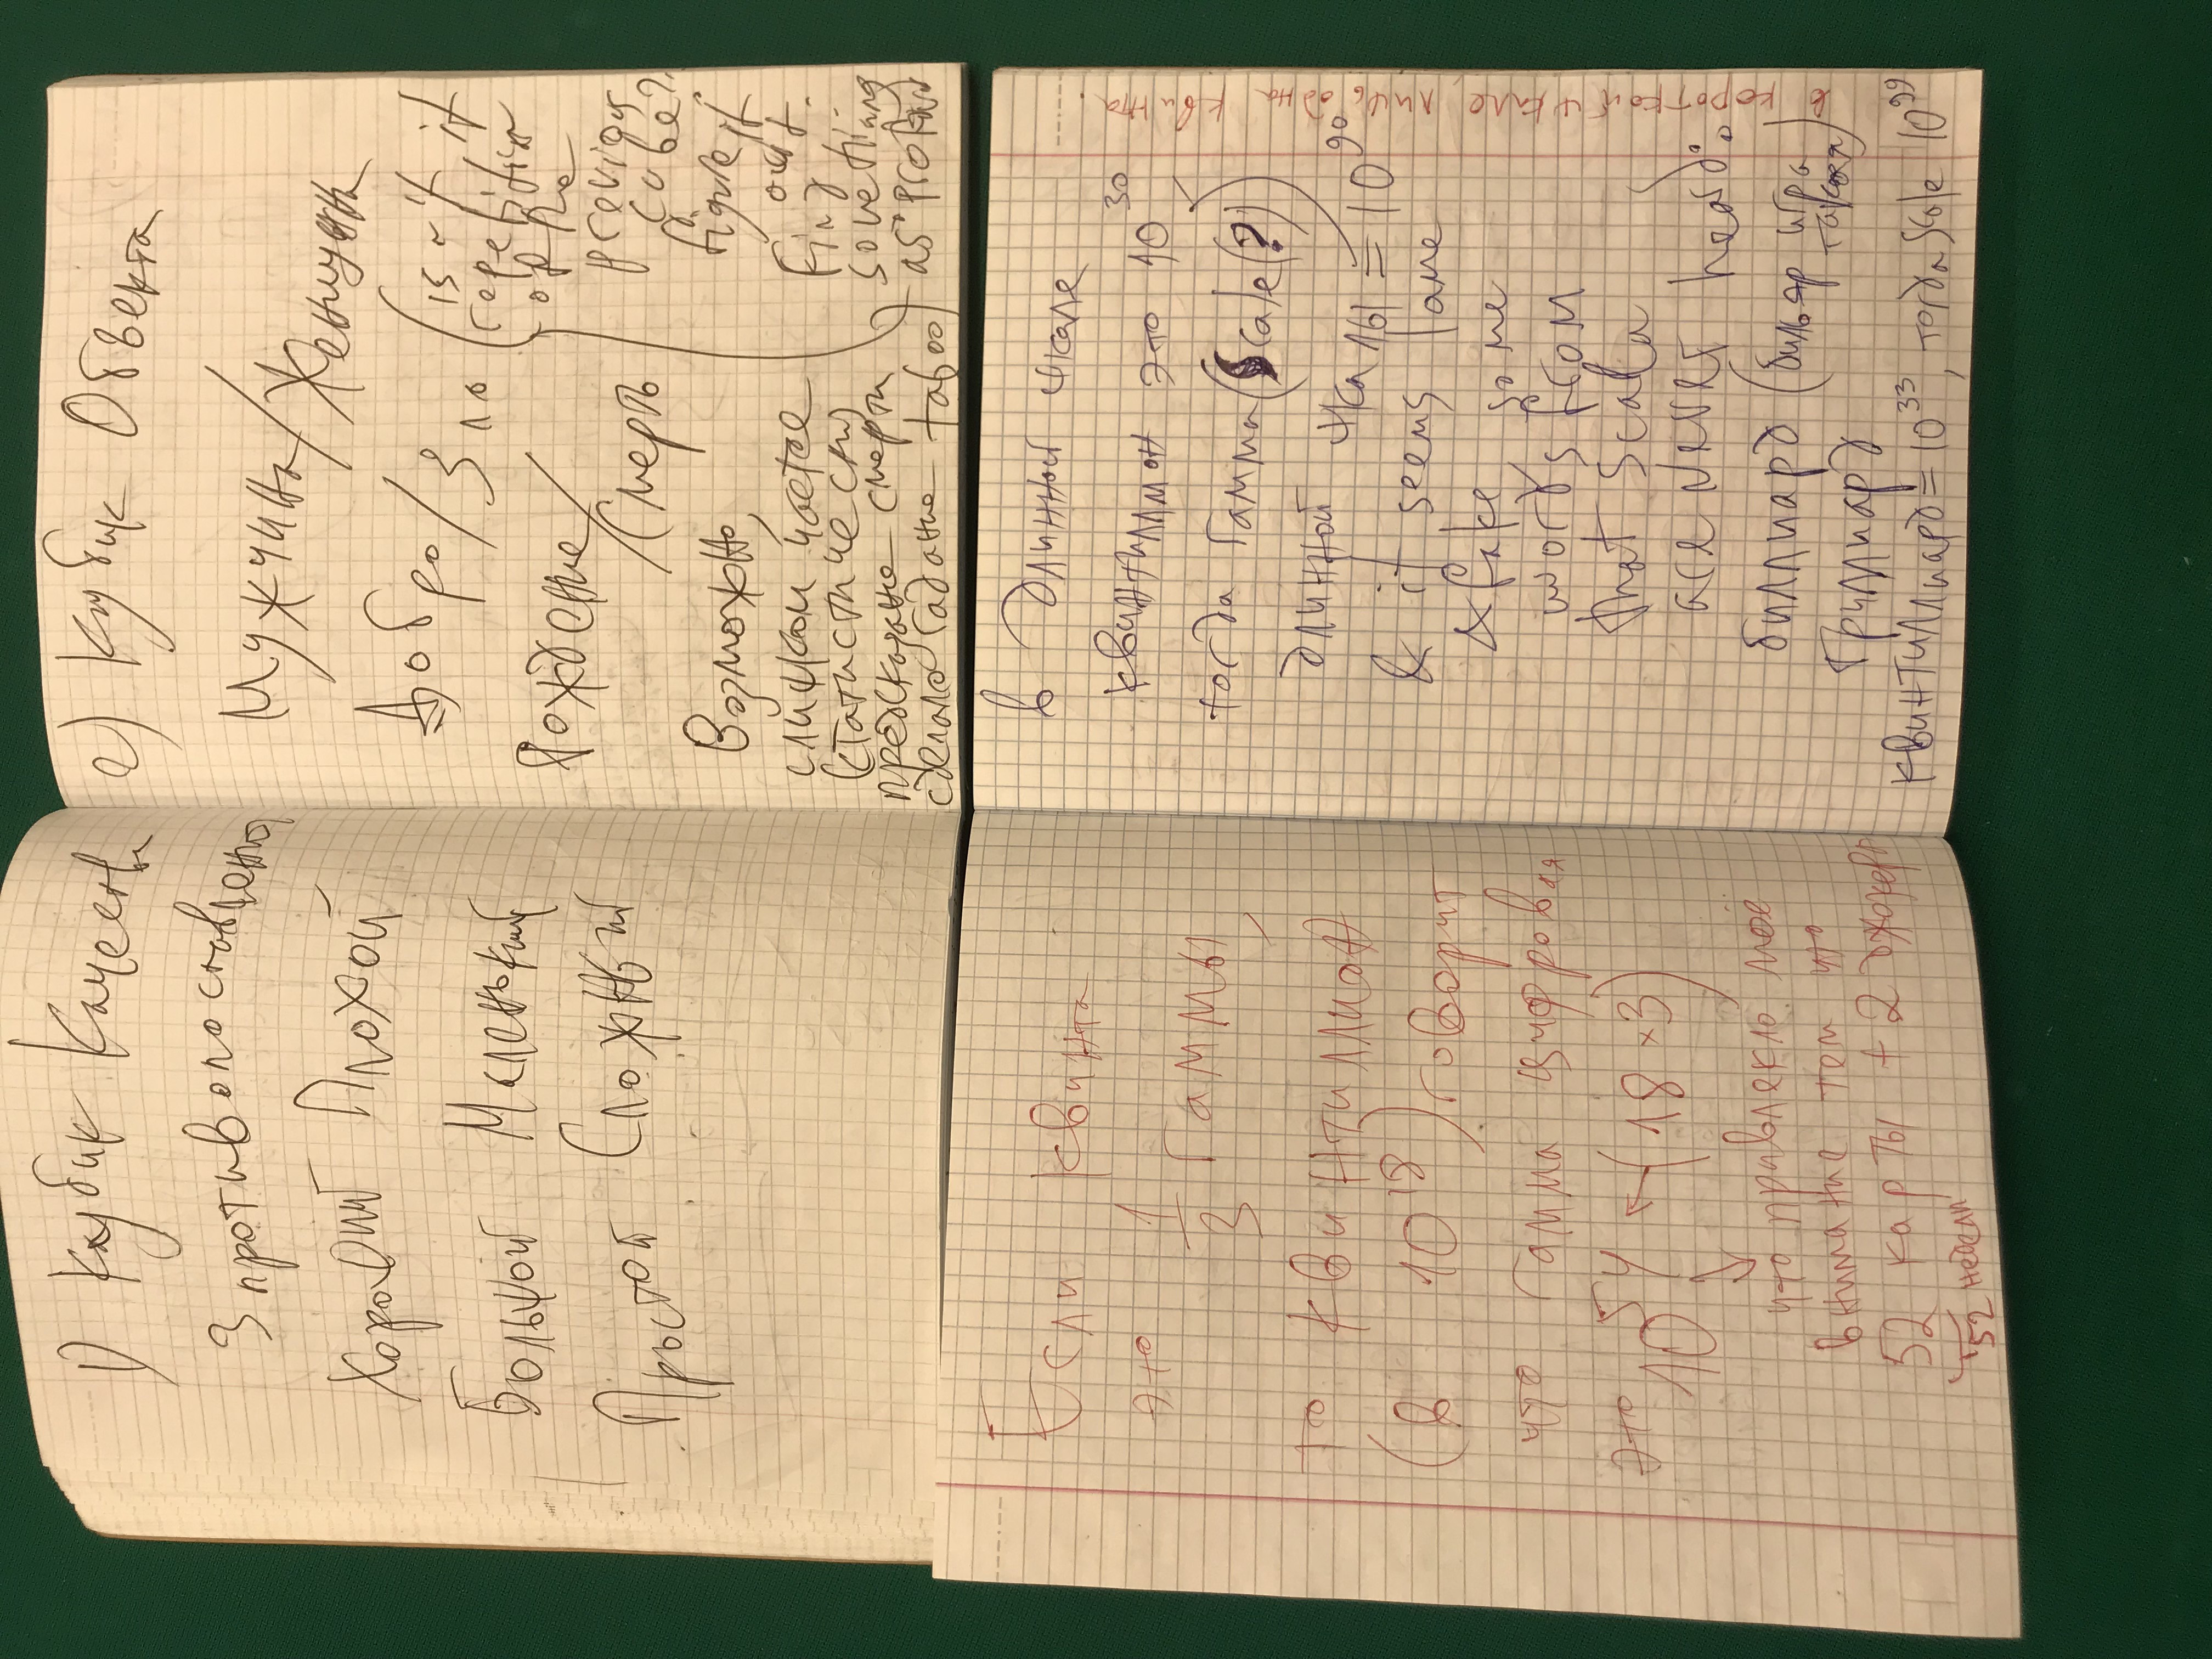 1) Кубик Качества
3 противопоставления
Хороший Плохой
Большой Маленький
Простой Сложный
2) Кубик Объекта
Мужчина/
Женщина
Добро/Зло
Рождение/
Смерть
Возможно,
слишком частое
(статистически)
предсказание смерти
сделало гадание taboo)
(isn't it
repetition
of the
previous
cube?
figure it
out.
Find
something
as profound
Если квинта
это 1/3 гаммы,
то квинтиллион
(в 10^18) говорит
что гамма цифровая
это 10^54 ← (18 × 3)
что привлекло моё
внимание тем что
52 карты + 2 джокера
52 недели
в длинной шкале
квинтиллион это 10^30
тогда гамма (Scale(?))
длинной шкалы = 10^90
& it seems lame
& fake, some
words from
that scala
are never heard:
биллиард (бильяр игра
такая)
Триллиард
квинтиллиард = 10^33, тогда Scale 10^99
в короткой шкале, лишь одна квинта.